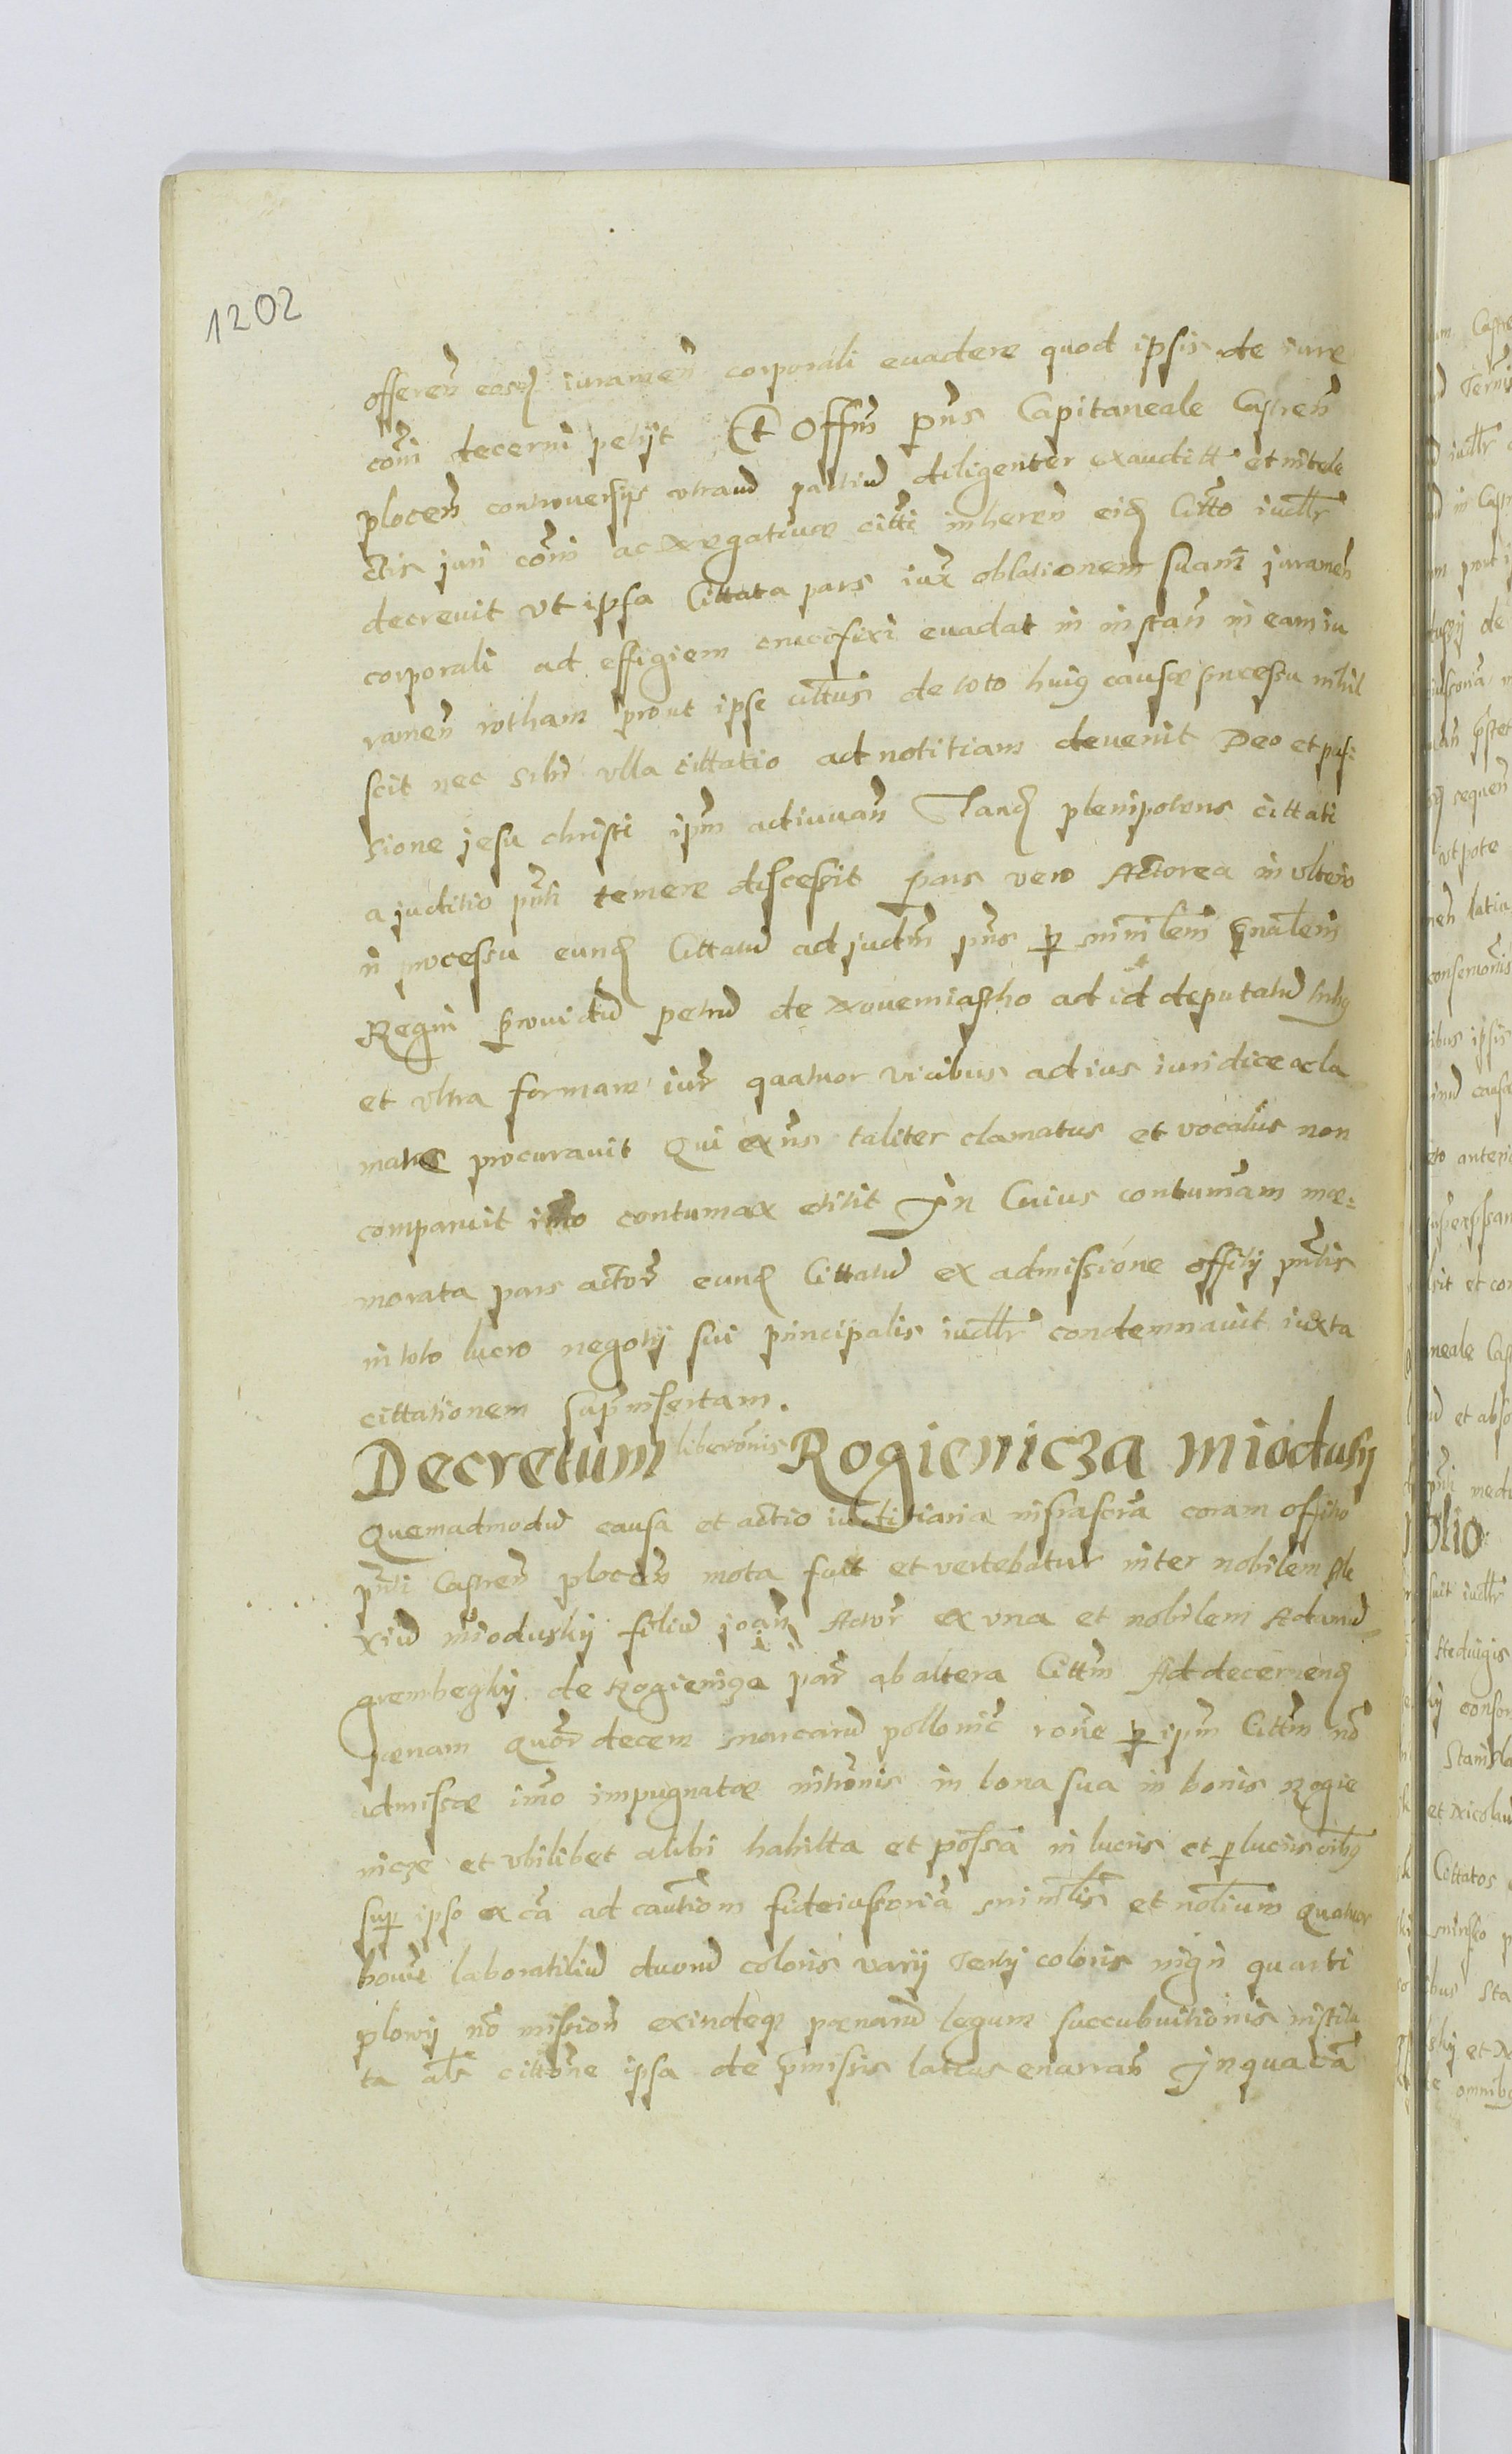 1202
offeren̄ eosdē iuramen̄ corporali euadere quod ipsis de iure
cōni decerni petijt Et Offm̄ pn̄s Capitaneale Castren̄
plocen̄ controuersijs utrarū partiū diligenter exauditt et intele
ctis juri cōni ac negatiuæ citti inheren̄ eidē Citto iudlr̄
decreuit vt ipsa Cittata pars iux̄ oblationem suam juramen̄
corporali ad effigiem crucifixi euadat in instan̄ in eam iu
ramen̄ rotham prout ipse cittus de toto huiꝯ causæ processu nihil
scit nec sibi vlla cittatio ad notitiam deuenit Deo et pas:
sione jesu christi ipm̄ adiuuan̄ Tandē plenipotens cittati
a juditio pn̄ti temere discessit pars vero Actorea in vlterio
ri processu eundē Cittatū ad judm̄ pn̄s p minlem gn̄alem
Regni prouidū petrū de Nouemiastho ad id deputatū
et vltra formam iur̄ quatuor vicibus ad ius iuridice acla
mare procurauit Qui exn̄s taliter clamatus et vocatus non
comparuit imo contumax etitit In Cuius contumam me=
morata pars actor̄ eundē Cittatū ex admissione offitij pn̄tis
in toto lucro negotij sui principalis iudlr̄ condemnauit iuxta
cittationem suprinsertam.
Decretum liberōnis Rogienicza miodusij
Quemadmodū causa et actio iuditiaria infrascrā coram offitio
pn̄ti Castren̄ plocen̄ mota fuit et vertebatur inter nobilem Ale
xiū miodusky filiū joan̄ Actor̄ ex vna et nobilem Adamū
grembeczky de Rogienicza par̄ ab altera Cittm̄ Ad decernendē
pœnam quor̄ decem marcarū pollonic̄ rōne p ipm̄ Cittm̄ nō
admissæ imo impugnatæ intrōnis in bona sua in bonis Rogie
nicze et vbilibet alibi habitta et possā in lucris et p lucris oīb
sup ipso ex cā ad cautiōm fideiussoriā minlis et nolium quatuor
bouū laboratiliū duorū coloris varij Tertij coloris nigri quarti
plowij nō mission̄ exindeqꝫ pœnarū legum succubuitionis instita
ta als̄ cittōne ipsa de pmissis latius enarran̄ In qua cā